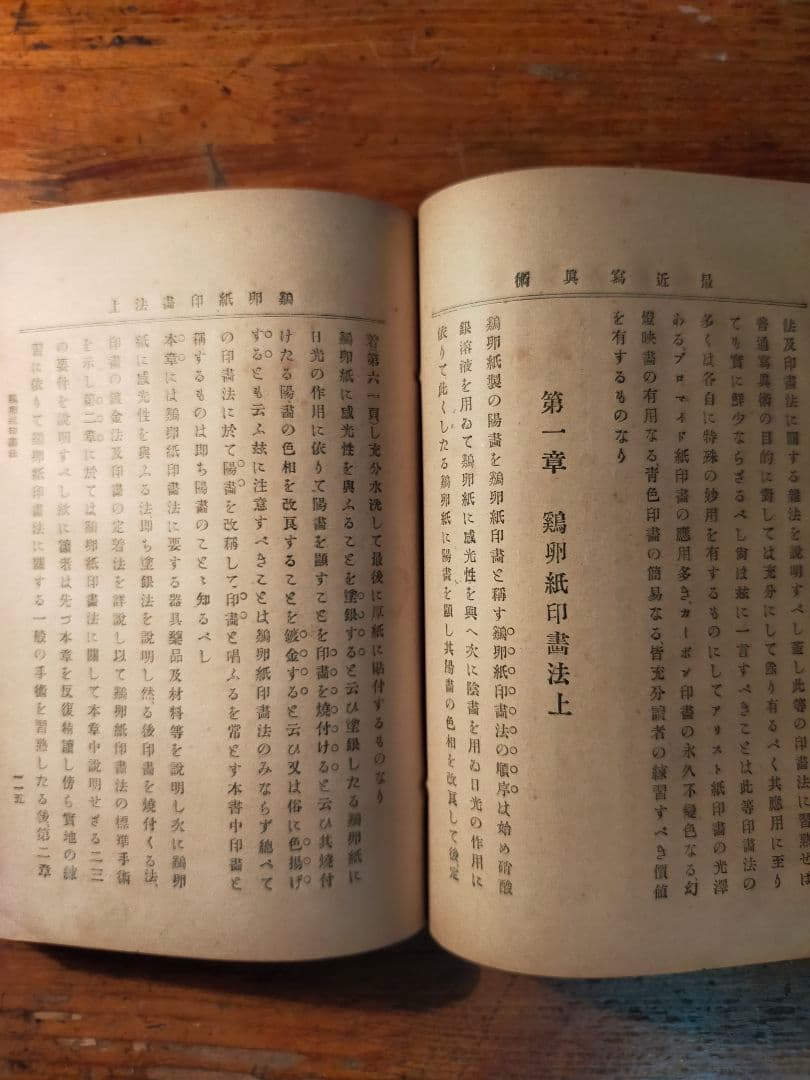 最近寫眞術
法及印畫法に關する全般を說明し蓋し此等の印畫法に習熟せは
普通寫眞術の目的に對しては充分にして餘り有るべく其應用に至り
ても實に鮮少ならざるべし尙ほ玆に一言すべきことは此等印畫法の
多くは各自に特殊の妙用を有するものにしてアリスト紙印畫の光澤
あるブロマイド紙印畫の應用多き、カーボン印畫の永久不變色なる、幻
燈映畫の有用なる、靑色印畫の簡易なる、皆充分讀者の練習すべき價値
を有するものなり
第一章　鷄卵紙印畫法上
鷄卵紙製の陽畫を鷄卵紙印畫と稱す鷄卵紙印畫法の順序は始め硝酸
銀溶液を用ゐて鷄卵紙に感光性を與へ次に陰畫を用ゐ日光の作用に
依りて此くしたる鷄卵紙に陽畫を顯し其陽畫の色相を改良して後、定
鷄卵紙印畫法上
着(第六一頁)し充分水洗して最後に厚紙に貼付するものなり
鷄卵紙に感光性を與ふることを塗銀すると云ひ塗銀したる鷄卵紙に
日光の作用に依りて陽畫を顯すことを印畫を燒付けると云ひ其燒付
けたる陽畫の色相を改良することを鍍金すると云ひ又は俗に色揚げ
するとも云ふ玆に注意すべきことは鷄卵紙印畫法のみならず總べて
の印畫法に於て陽畫を改稱して印畫と唱ふるを常とす本書中印畫と
稱するものは卽ち陽畫のことゝ知るべし
本章には鷄卵紙印畫法に要する器具藥品及材料等を說明し次に鷄卵
紙に感光性を與ふる法卽ち塗銀法を說明し然る後印畫を燒付くる法、
印畫の鍍金法及印畫の定着法を詳說し以て鷄卵紙印畫法の標準手術
を示し第二章に於ては鷄卵紙印畫法に關して本章中說明せざる二三
の要件を說明すべし故に讀者は先づ本章を反復精讀し傍ら實地の練
習に依りて鷄卵紙印畫法に關する一般の手術を習熟したる後、第二章
鷄卵紙印畫法
二五